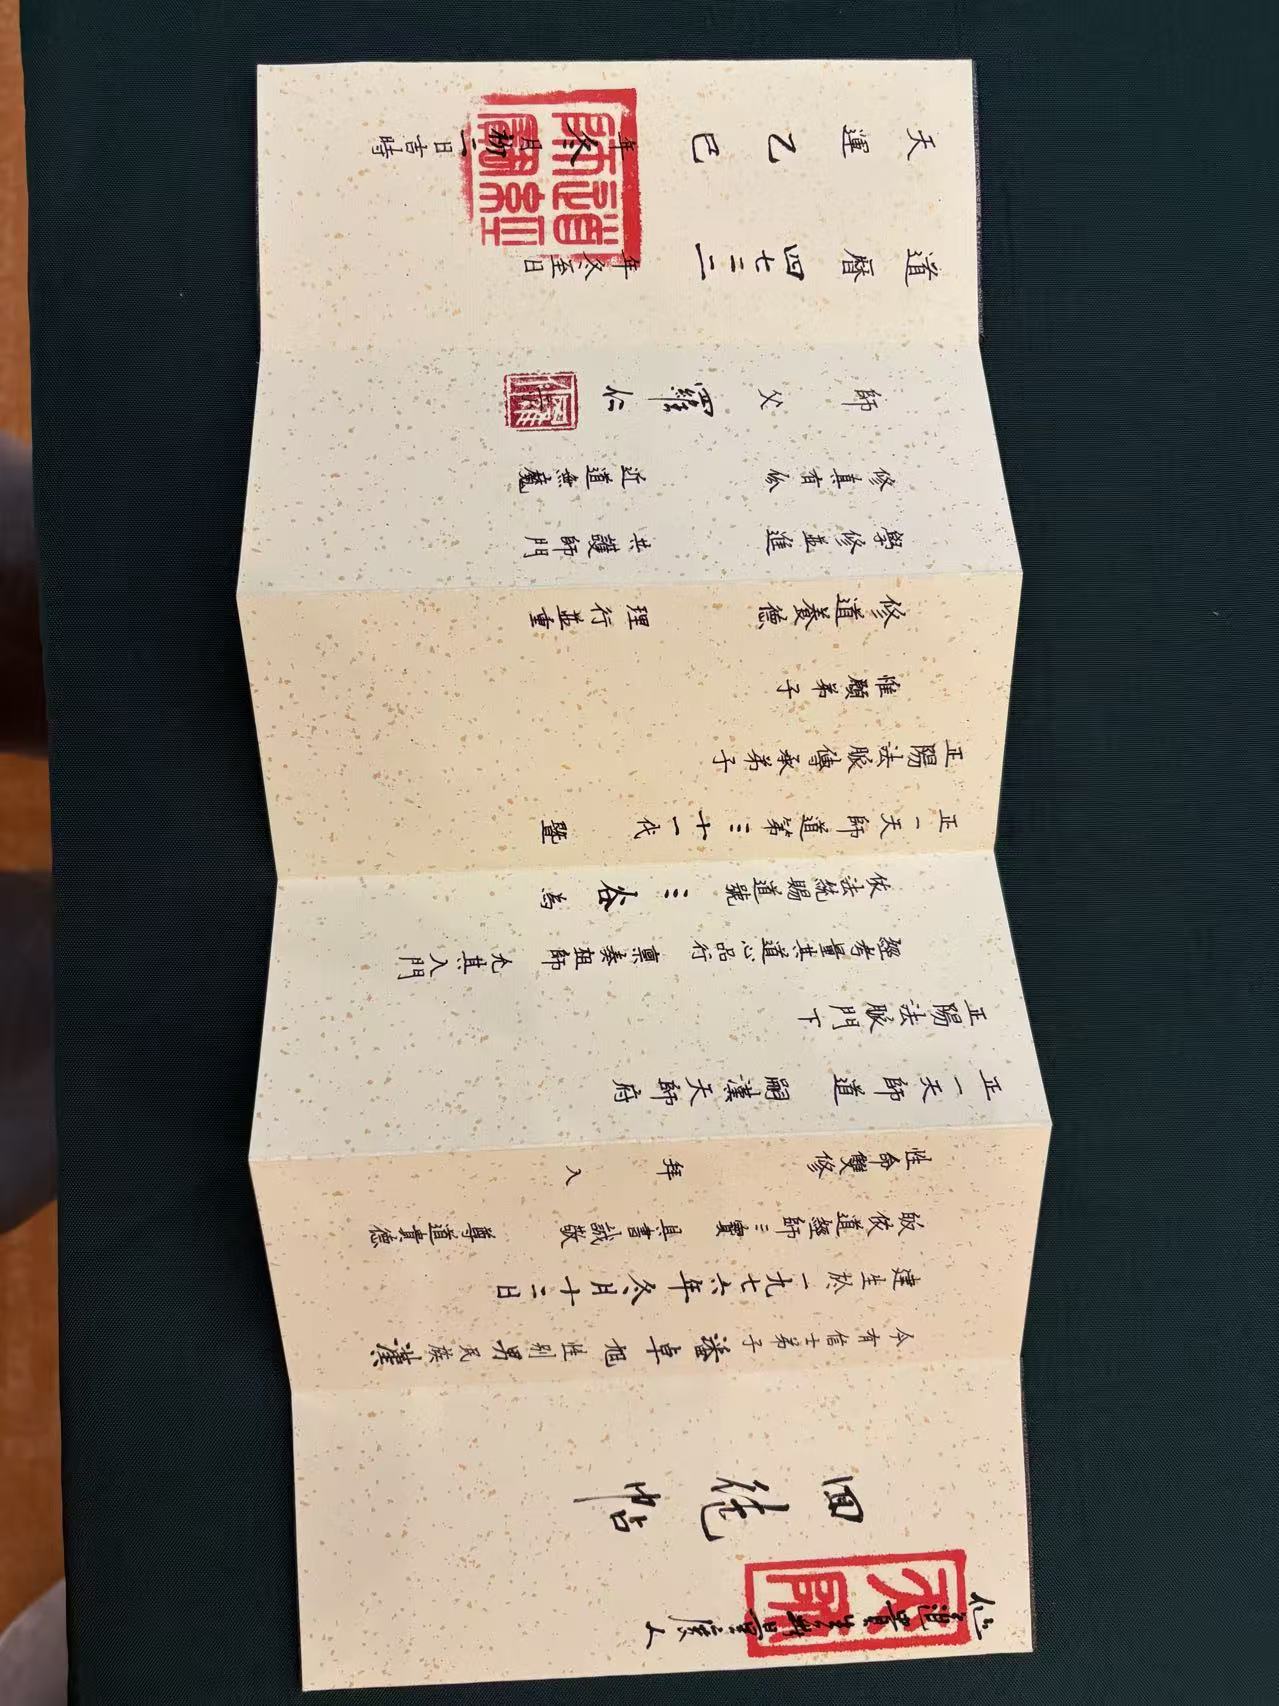 回徒帖
今有信士弟子 潘卓旭 性別 男 民族 漢
建生於一九七六年冬月十二日
皈依道經師三寶 具書誠敬 尊道貴德
性命雙修 拜入
正一天師道 嗣漢天師府
正陽法脈門下
經考量其道心品行 稟奏祖師 允其入門
依法統賜道號 三谷 為
正一天師道第三十一代 暨
正陽法脈傳承弟子
惟願弟子
修道養德 理行並重
學修並進 共護師門
修真有份 近道無魔
師父 羅仁
道曆 四七二二 年冬至日
天運 乙巳 年 冬 月 初二 日吉時